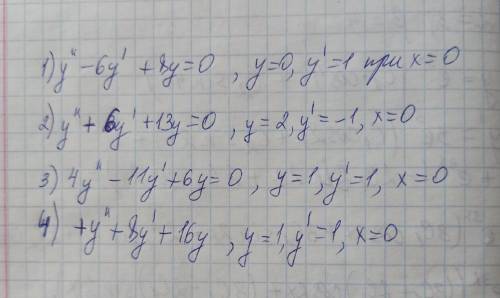 1) y" - 6y' + 8y = 0 , y=0, y'=1 при x=0
2) y" + 6y' + 13y = 0 , y=2, y'=-1, x=0
3) 4y" - 11y' + 6y = 0 , y=1, y'=1, x=0
4) +y" + 8y' + 16y , y=1, y'=1, x=0